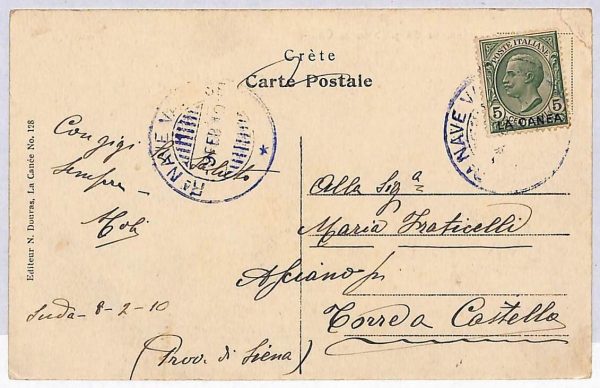 Crète
Carte Postale
POSTE ITALIANE
5 5
LA CANEA
RA NAVE VA
FEB
RA NAVE VA
Con gigi
Sempre
Suda - 8-2-10
Alla Sig.a
Maria Fraticelli
Asciano p
Torre a Castello
(Prov. di Siena)
Editeur N. Douras, La Canée No. 128